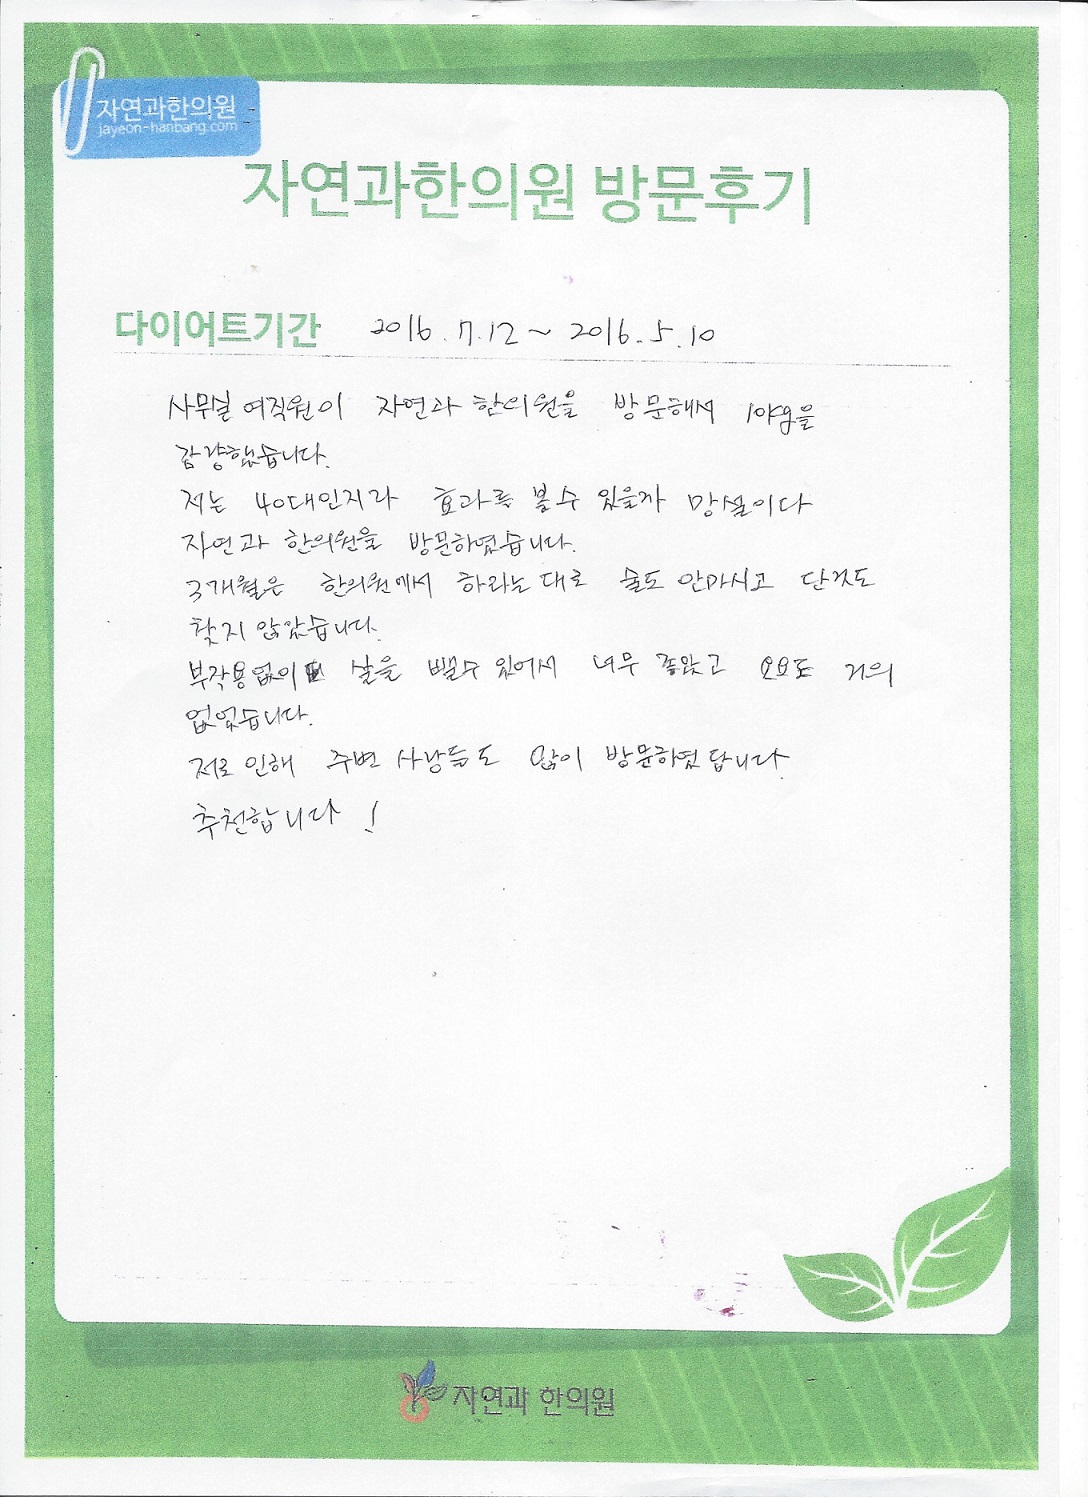 자연과한의원
jayeon-hanbang.com
자연과한의원 방문후기
다이어트기간 2016.7.12 ~ 2016.5.10
사무실 여직원이 자연과 한의원을 방문해서 10kg을
감량했습니다.
저는 40대인지라 효과를 볼수 있을까 망설이다
자연과 한의원을 방문하였습니다.
3개월은 한의원에서 하라는대로 술도 안마시고 단것도
찾지 않았습니다.
부작용없이 살을 뺄수 있어서 너무 좋았고 요요도 거의
없었습니다.
저로 인해 주변 사람들도 많이 방문하였답니다.
추천합니다 !
자연과 한의원